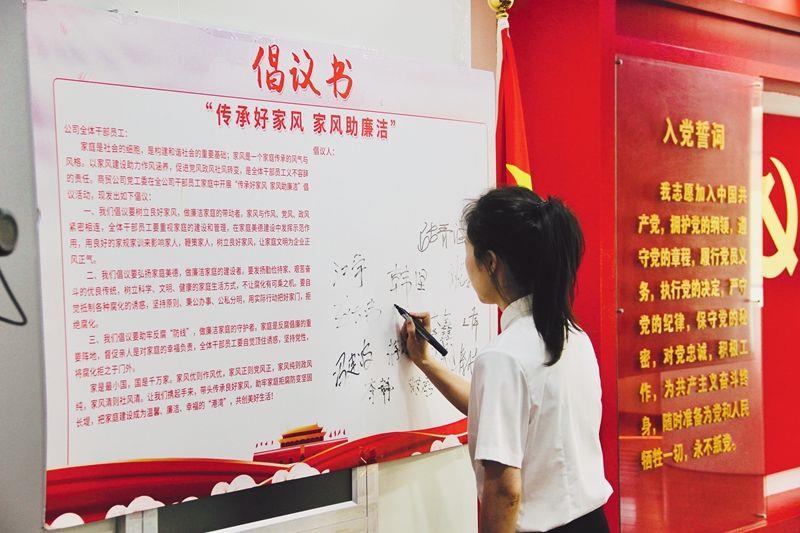 倡议书
“传承好家风 家风助廉洁”
公司全体干部员工：
家庭是社会的细胞，是构建和谐社会的重要基础；家风是一个家庭传承的风气与
风格。以家风建设助力作风涵养，促进党风政风社风转变，是全体员工义不容辞
的责任。商贸公司党工委在全公司干部员工家庭中开展“传承好家风 家风助廉洁”倡
议活动，现发出如下倡议：
一、我们倡议要树立良好家风，做廉洁家庭的带动者，家风与作风、党风、政风
紧密相连，全体干部员工要重视家庭的建设和管理，在家庭美德建设中发挥示范作
用，用良好的家规家训来影响家人，鞭策家人，树立良好家风，让家庭文明为企业正
风正气。
二、我们倡议要弘扬家庭美德，做廉洁家庭的建设者，要发扬勤俭持家、艰苦奋
斗的优良传统，树立科学、文明、健康的家庭生活方式，不让腐化有可乘之机。要自
觉抵制各种腐化的诱惑，坚持原则、秉公办事、公私分明，用实际行动把好家门，拒
绝腐化。
三、我们倡议要助牢反腐“防线”，做廉洁家庭的守护者，家庭是反腐倡廉的重
要阵地，督促亲人是对家庭的幸福负责，全体干部员工要自觉顶住诱惑，坚持党性，
将腐化拒之于门外。
家是最小国，国是千万家。家风优则作风优，家风正则党风正，家风纯则政风
纯，家风清则社风清。让我们携起手来，带头传承良好家风，助牢家庭拒腐防变坚固
长堤，把家庭建设成为温馨、廉洁、幸福的“港湾”，共创美好生活！
倡议人：
入党誓词
我志愿加入中国共
产党，拥护党的纲领，遵
守党的章程，履行党员义
务，执行党的决定，严守
党的纪律，保守党的秘
密，对党忠诚，积极工
作，为共产主义奋斗终
身，随时准备为党和人民
牺牲一切，永不叛党。